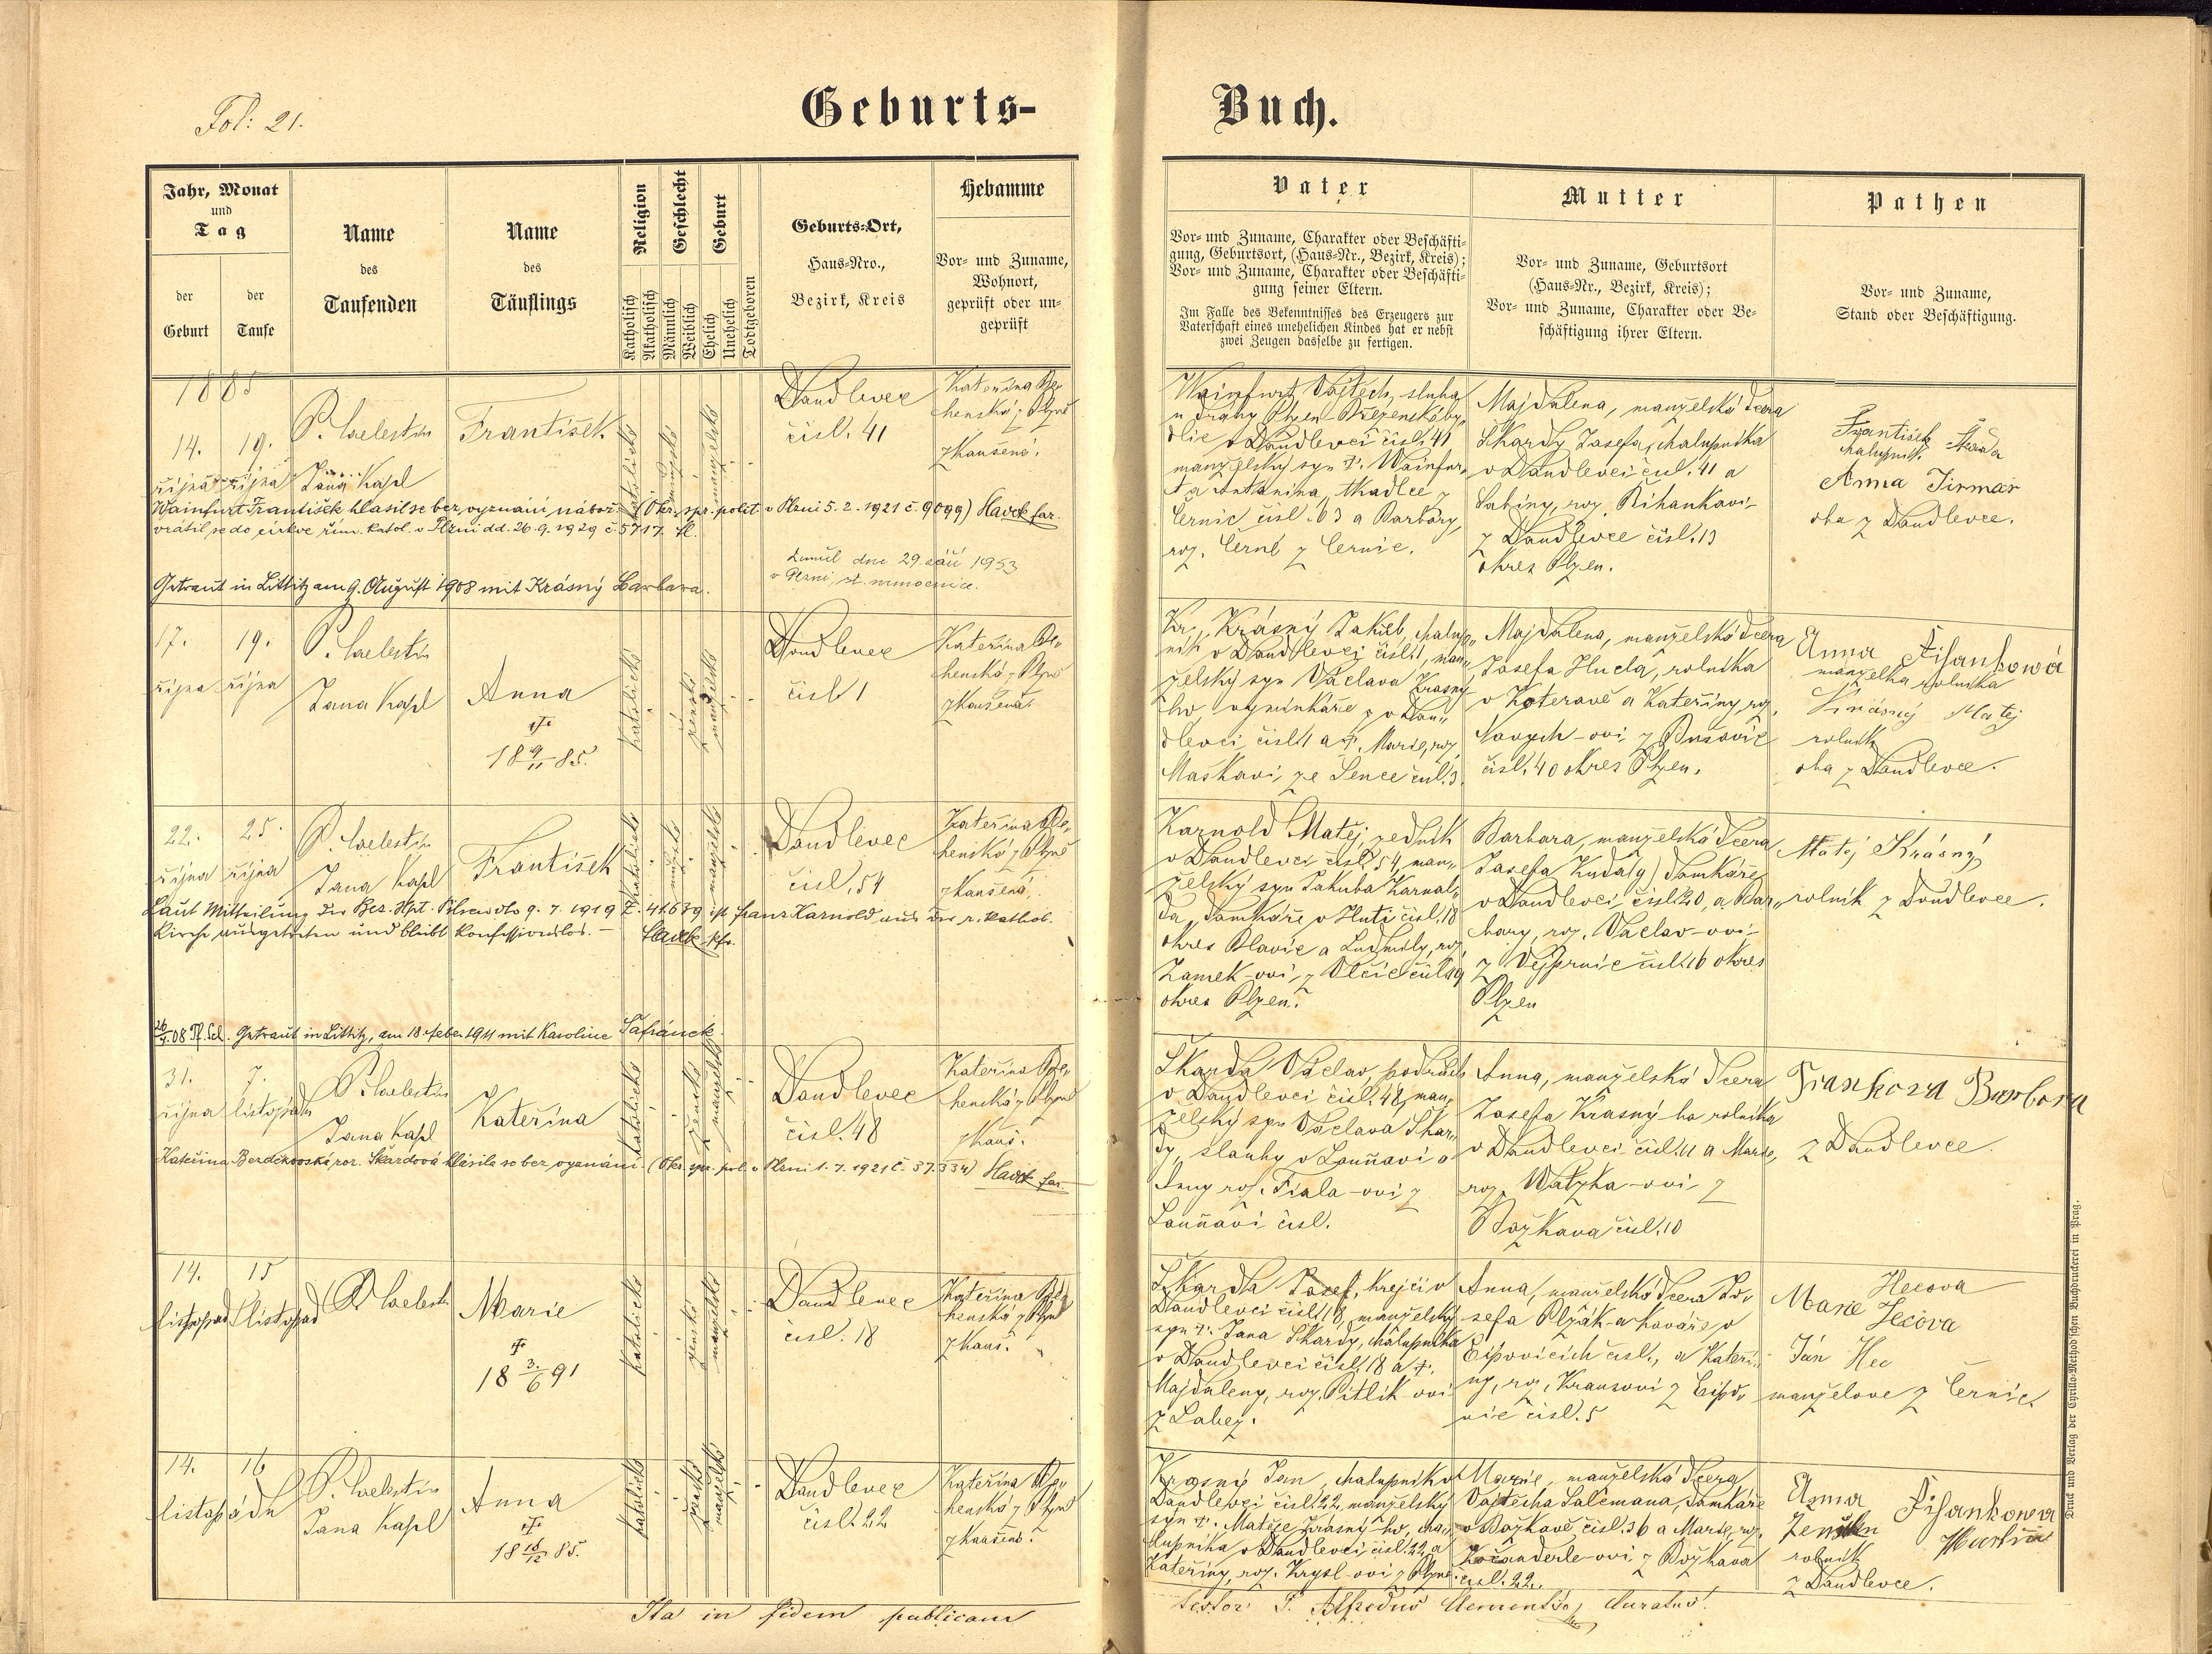 Fol: 21.
Geburts-
Buch.
Jahr, Monat
und
Tag
der
Geburt
der
Taufe
Name
des
Taufenden
Name
des
Täuflings
Religion
Katholisch
Akatholisch
Geschlecht
Männlich
Weiblich
Geburt
Ehelich
Unehelich
Todtgeboren
Geburts-Ort,
Haus-Nro.,
Bezirk, Kreis
Hebamme
Vor- und Zuname,
Wohnort,
geprüft oder un-
geprüft
Vater
Vor- und Zuname, Charakter oder Beschäfti-
gung, Geburtsort, (Haus-Nr., Bezirk, Kreis);
Vor- und Zuname, Charakter oder Beschäfti-
gung seiner Eltern.
Im Falle des Bekenntnisses des Erzeugers zur
Vaterschaft eines unehelichen Kindes hat er nebst
zwei Zeugen dasselbe zu fertigen.
Mutter
Vor- und Zuname, Geburtsort
(Haus-Nr., Bezirk, Kreis);
Vor- und Zuname, Charakter oder Be-
schäftigung ihrer Eltern.
Pathen
Vor- und Zuname,
Stand oder Beschäftigung.
1885
14.
října
19.
října
P. Coelestin
Jana Kapl
František
katolické
mužské
manželské
Doudlevec
čísl. 41
Kateřina
henská z Plzně
zkoušená.
Wainfurt Vojtěch, sluha
u dráhy Plzen-Březenské by-
dlic v Doudlevci čísl. 41
manželský syn
Černic čísl. 63 a Barbory,
roz. Černé z Černic.
Majdalena, manželská dcera
Škardy Josefa, chalupníka
v Doudlevci čísl. 41 a
Sabiny, roz.
z Doudlevce čísl. 13
okres Plzen.
František Škarda
chalupník
Anna Jirmař
oba z Doudlevce.
Wainfurt František hlásil se bez vyznání nábož. (Okr. spr. polit. v Plzni 5. 2. 1921 č. 9099) Havek far.
vrátil se do církve řím. katol. v Plzni dd. 26. 9. 1929 č. 5717.
Zemřel dne 29. září 1953
v Plzni, st. nemocnice.
Getraut in Littitz am 9. August 1908 mit Krásný Barbara.
17.
října
19.
října
P. Coelestin
Jana Kapl
Anna
†
18 9/11 85.
katolické
ženské
manželské
Doudlevec
čísl. 1
Kateřina
henská z Plzně
zkoušená
Krásný Jakub, chalup-
ník v Doudlevci čísl. 1, man-
želský syn Václava Krásný-
ho výminkáře v Dou-
dlevci čísl. 1 a †. Marie, roz.
Maškovi, ze Sence čísl. 3.
Majdalena, manželská dcera
Josefa Hucla, rolníka
v Koterově a Kateřiny, roz.
Nových-ovi z Busovic
čísl. 40 okres Plzen.
Anna Řihankowá
manželka rolníka
Krásný Matěj
rolník
oba z Doudlevce.
22.
října
25.
října
P. Coelestin
Jana Kapl
František
katolické
mužské
manželské
Doudlevec
čísl. 54
Kateřina
henská z Plzně
zkoušená.
Karnold Matěj, zedník
v Doudlevci čísl. 54, man-
želský syn Jakuba Karnol-
da, domkáře v Huti čísl. 18
okres Blovic a Ludmily, roz.
Zamek-ovi, z Vlčic čísl. 9
okres Plzen.
Barbara, manželská dcera
Josefa domkáře
v Doudlevci, čísl. 20, a Bar-
bory, roz. Václav-ovi
z Vejprnic čísl. 16 okres
Plzen
Matěj Krásný
rolník z Doudlevce.
Laut Mitteilung der Bez. Hpt. Pilsen dto 9. 7. 1919 Z. 41639 ist Franz Karnold aus der r. kathol.
Kirche ausgetreten und bleibt konfessionslos. – Havek pfr.
Getraut in Littitz, am 18. Feber 1911 mit Karoline Šafránek.
31.
října
7.
listopadu
P. Coelestin
Jana Kapl
Kateřina
katolické
ženské
manželské
Doudlevec
čísl. 48
Kateřina
henská z Plzně
zkouš.
Škarda Václav,
v Doudlevci čísl. 48, man-
želský syn Václava Škar-
dy,
Anny roz. Fiala-ovi z
čísl.
Anna, manželská dcera
Josefa Krásný-ho rolníka
v Doudlevci čísl. 11 a Marie,
roz. Watzka-ovi z
Božkova čísl. 10
Barbora
z Doudlevce.
Kateřina Berdekovská roz. Škardová hlásila se bez vyznání. (Okr. spr. pol. v Plzni 1. 7. 1921 č. 37.334) Havek far.
14.
listopad
15
listopad
P. Coelesti
Marie
†
18 3./6 91
katolické
ženské
manželské
Doudlevec
čísl. 18
Kateřina
henská z Plzně
zkouš.
Škarda Josef, krejčí v
Doudlevci čísl. 18, manželský
syn †. Jana Škardy, chalupníka
v Doudlevci čísl. 18 a †.
Majdaleny, roz. Pitlik-ovi
z Lobez.
Anna, manželská dcera Jo-
sefa Plzák-a kováře v
čísl., a Kateři-
ny, roz. Krausovi z
vic čísl. 5
Hecova
Marie Jecova
Ján Hec
manželove z Černic
14.
16
listopadu
P. Coelestin
Jana Kapl
Anna
†
18 18/12 85.
katolické
ženské
manželské
Doudlevec
čísl. 22
Kateřina
henská z Plzně
zkoušená.
Krásný Jan, chalupník v
Doudlevci čísl. 22, manželský
syn †. Matěje Krásný-ho, cha-
lupníka v Doudlevci, čísl. 22, a
Kateřiny, roz. Krysl-ovi z Plzně.
Marie, manželská dcera
Vojtěcha Salcmana, domkáře
v Božkově, čísl. 36 a Marie, roz.
Kočanderle-ovi z Božkova
čísl. 22.
Anna Řihankowa
Martin
rolník
z Doudlevce.
Ita in fidem publicam
testor P. Alfredus Clementso, Curatus.
Druck und Verlag der Cyrillo-Method'schen Buchdruckerei in Prag.